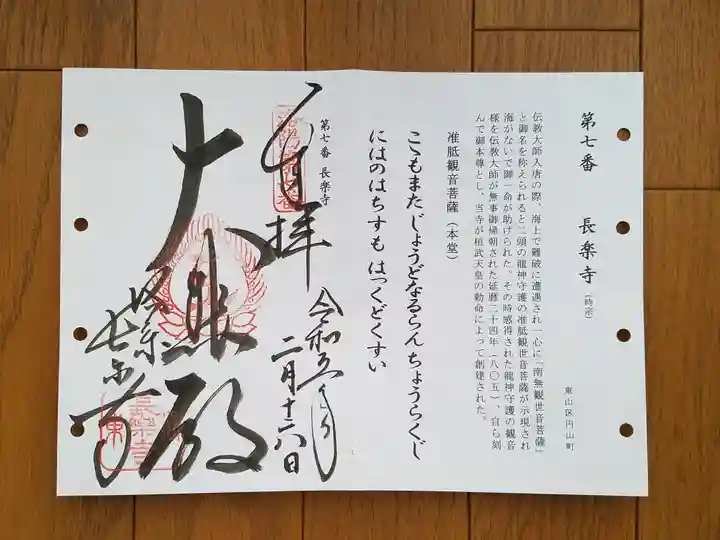 第七番　長楽寺（時宗）
東山区円山町
伝教大師入唐の際、海上で難破に遭遇され一心に「南無観世音菩薩」
と御名を称えられると二頭の龍神守護の准胝観世音菩薩が示現され
海がないで御一命が助けられた。その時感得された龍神守護の観音
様を伝教大師が無事御帰朝された延暦二十四年（八〇五）、自ら刻
んで御本尊とし、当寺が桓武天皇の勅命によって創建された。
准胝観音菩薩（本堂）
こゝもまた じょうどなるらん ちょうらくじ
にはのはちすも はつくどくすい
第七番 長楽寺
奉拝
令和五年
二月十六日
大悲殿
洛東
長楽寺